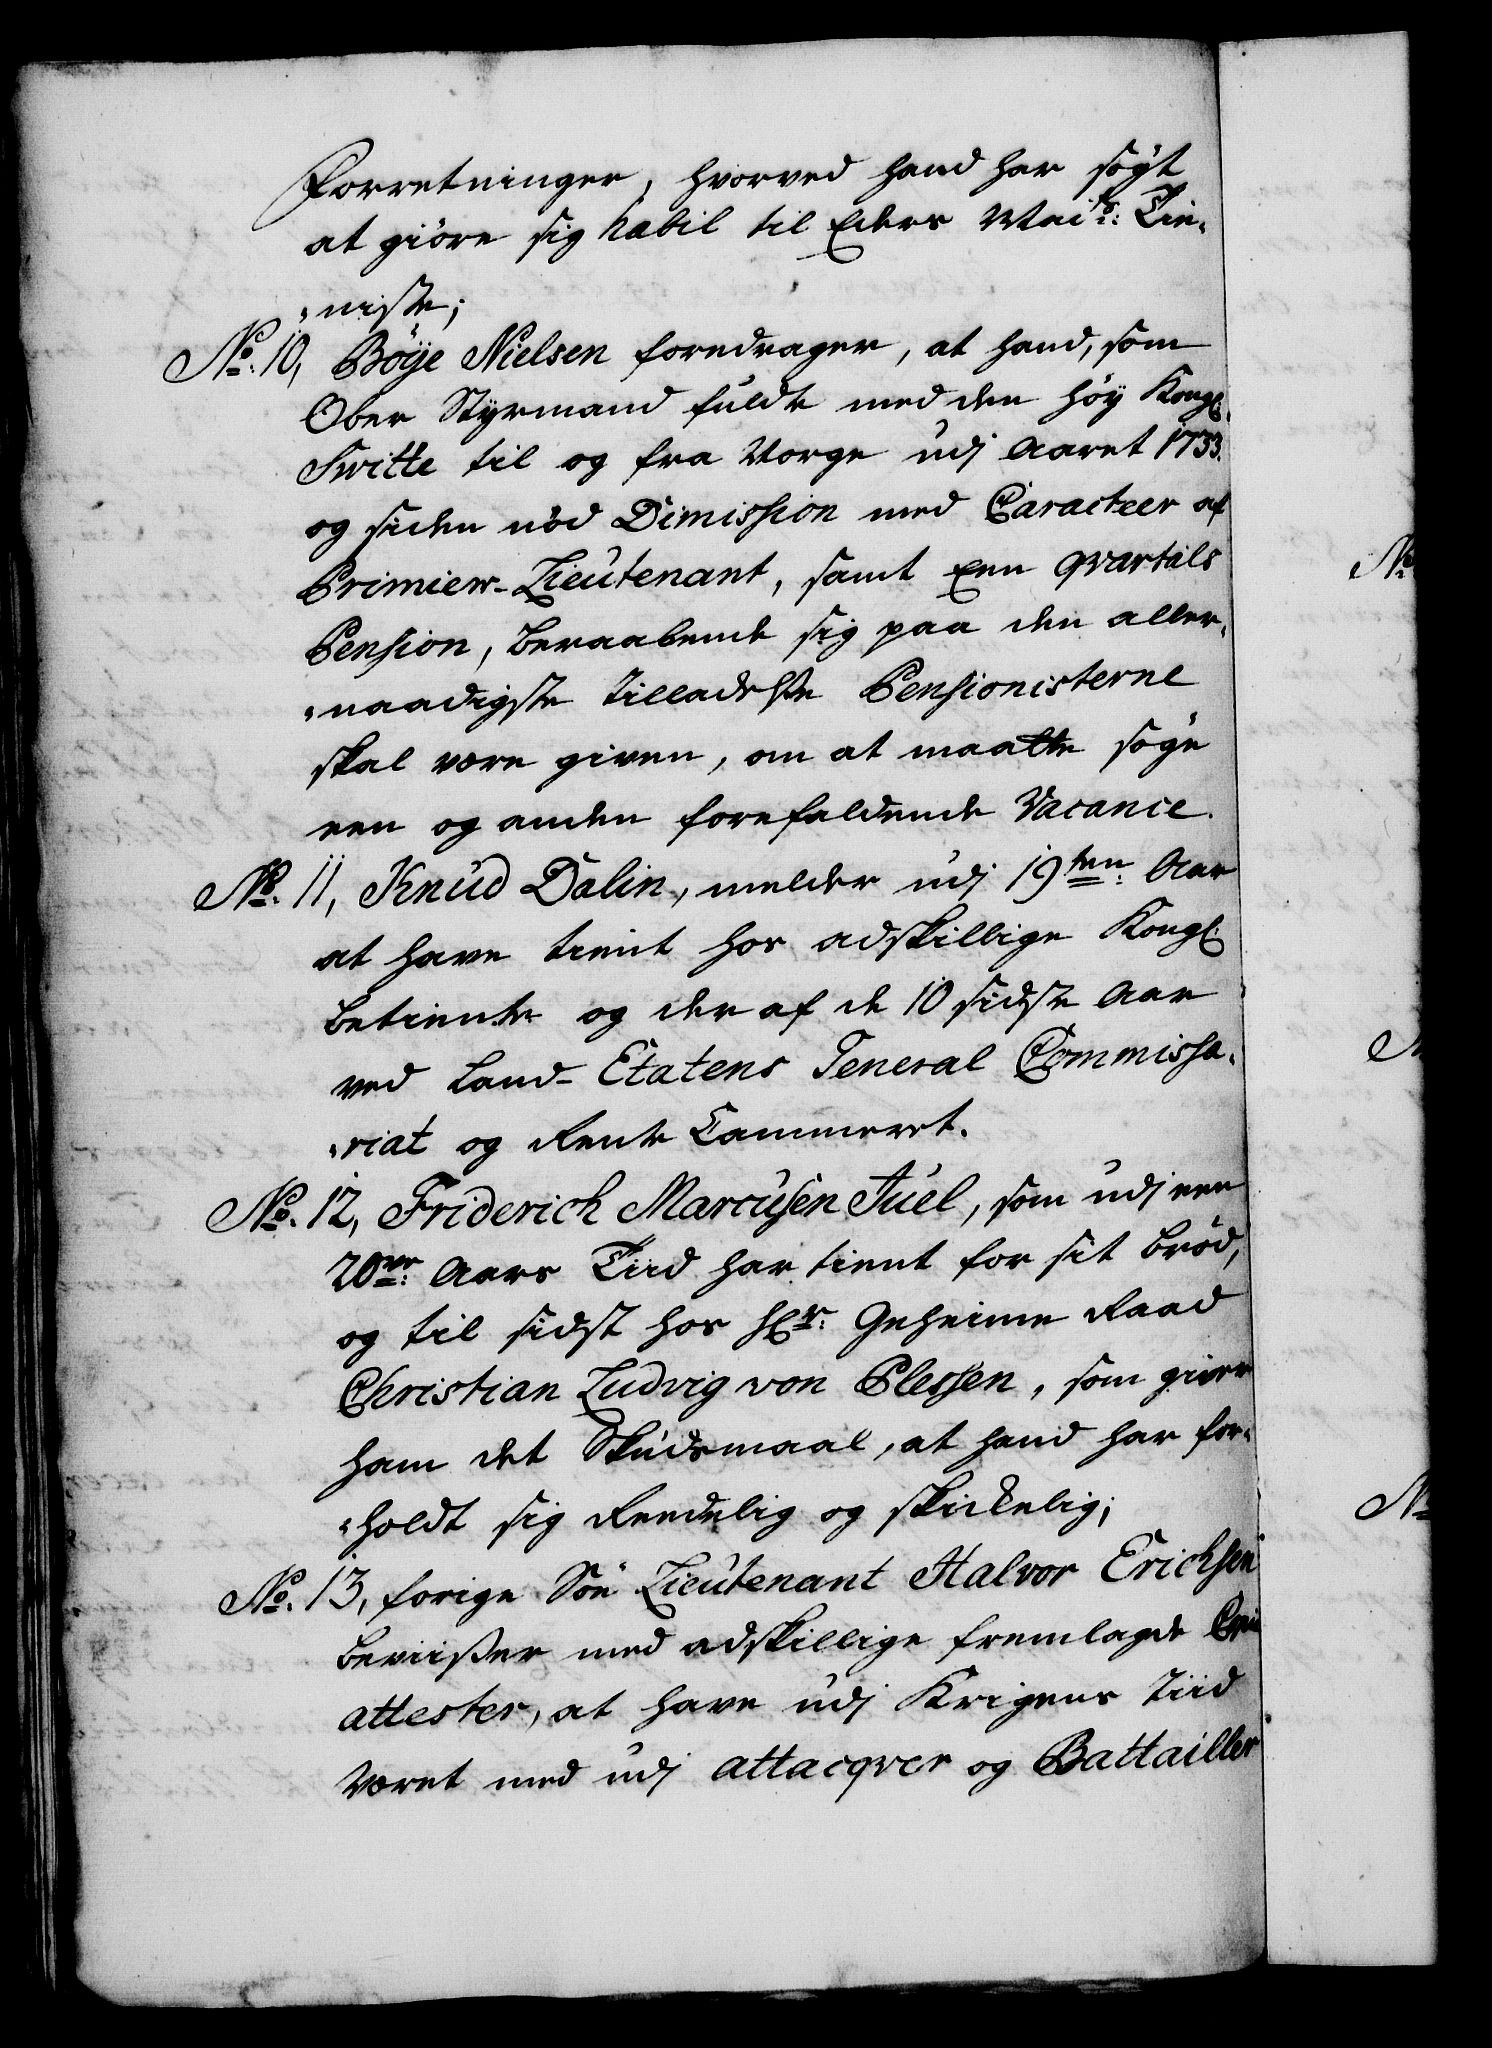 Forretninger, hvorved hand har søgt
at giöre sig habil til Eders Mai:ts: Tie-
niste;
No: 10, Böye Nielsen foredrager, at hand, som
Ober Styrmand fuldte med den höy Kongl:
Switte til og fra Norge udj Aaret 1733.
og siden nöd Dimission med Caracteer af
Primier-Lieutenant, samt Een qvartals
Pension, beraabende sig paa den aller-
naadigste tilladelse Pensionisterne
skal være given, om at maatte söge
een og anden forefaldende Vacance.
No: 11, Knud Dalin, melder udj 19ten: Aar
at have tient hos adskillige Kongl:
betiente og der af de 10 sidste Aar
ved Land-Etatens General Commissa-
riat og Rente Cammeret.
No: 12, Friderich Marcusen Juel, som udj een
20ve: Aars Tiid har tient for sit bröd,
og til sidst hos Hr: Geheime Raad
Christian Ludvig von Plessen, som giver
ham det Skudsmaal, at hand har for-
holdt sig Reedelig og skickelig;
No: 13, forige Söe Lieutenant Halvor Erichsen
beviisser med adskillige fremlagde
attester, at have udj Krigens Tiid
været med udj attacqver og Battailler